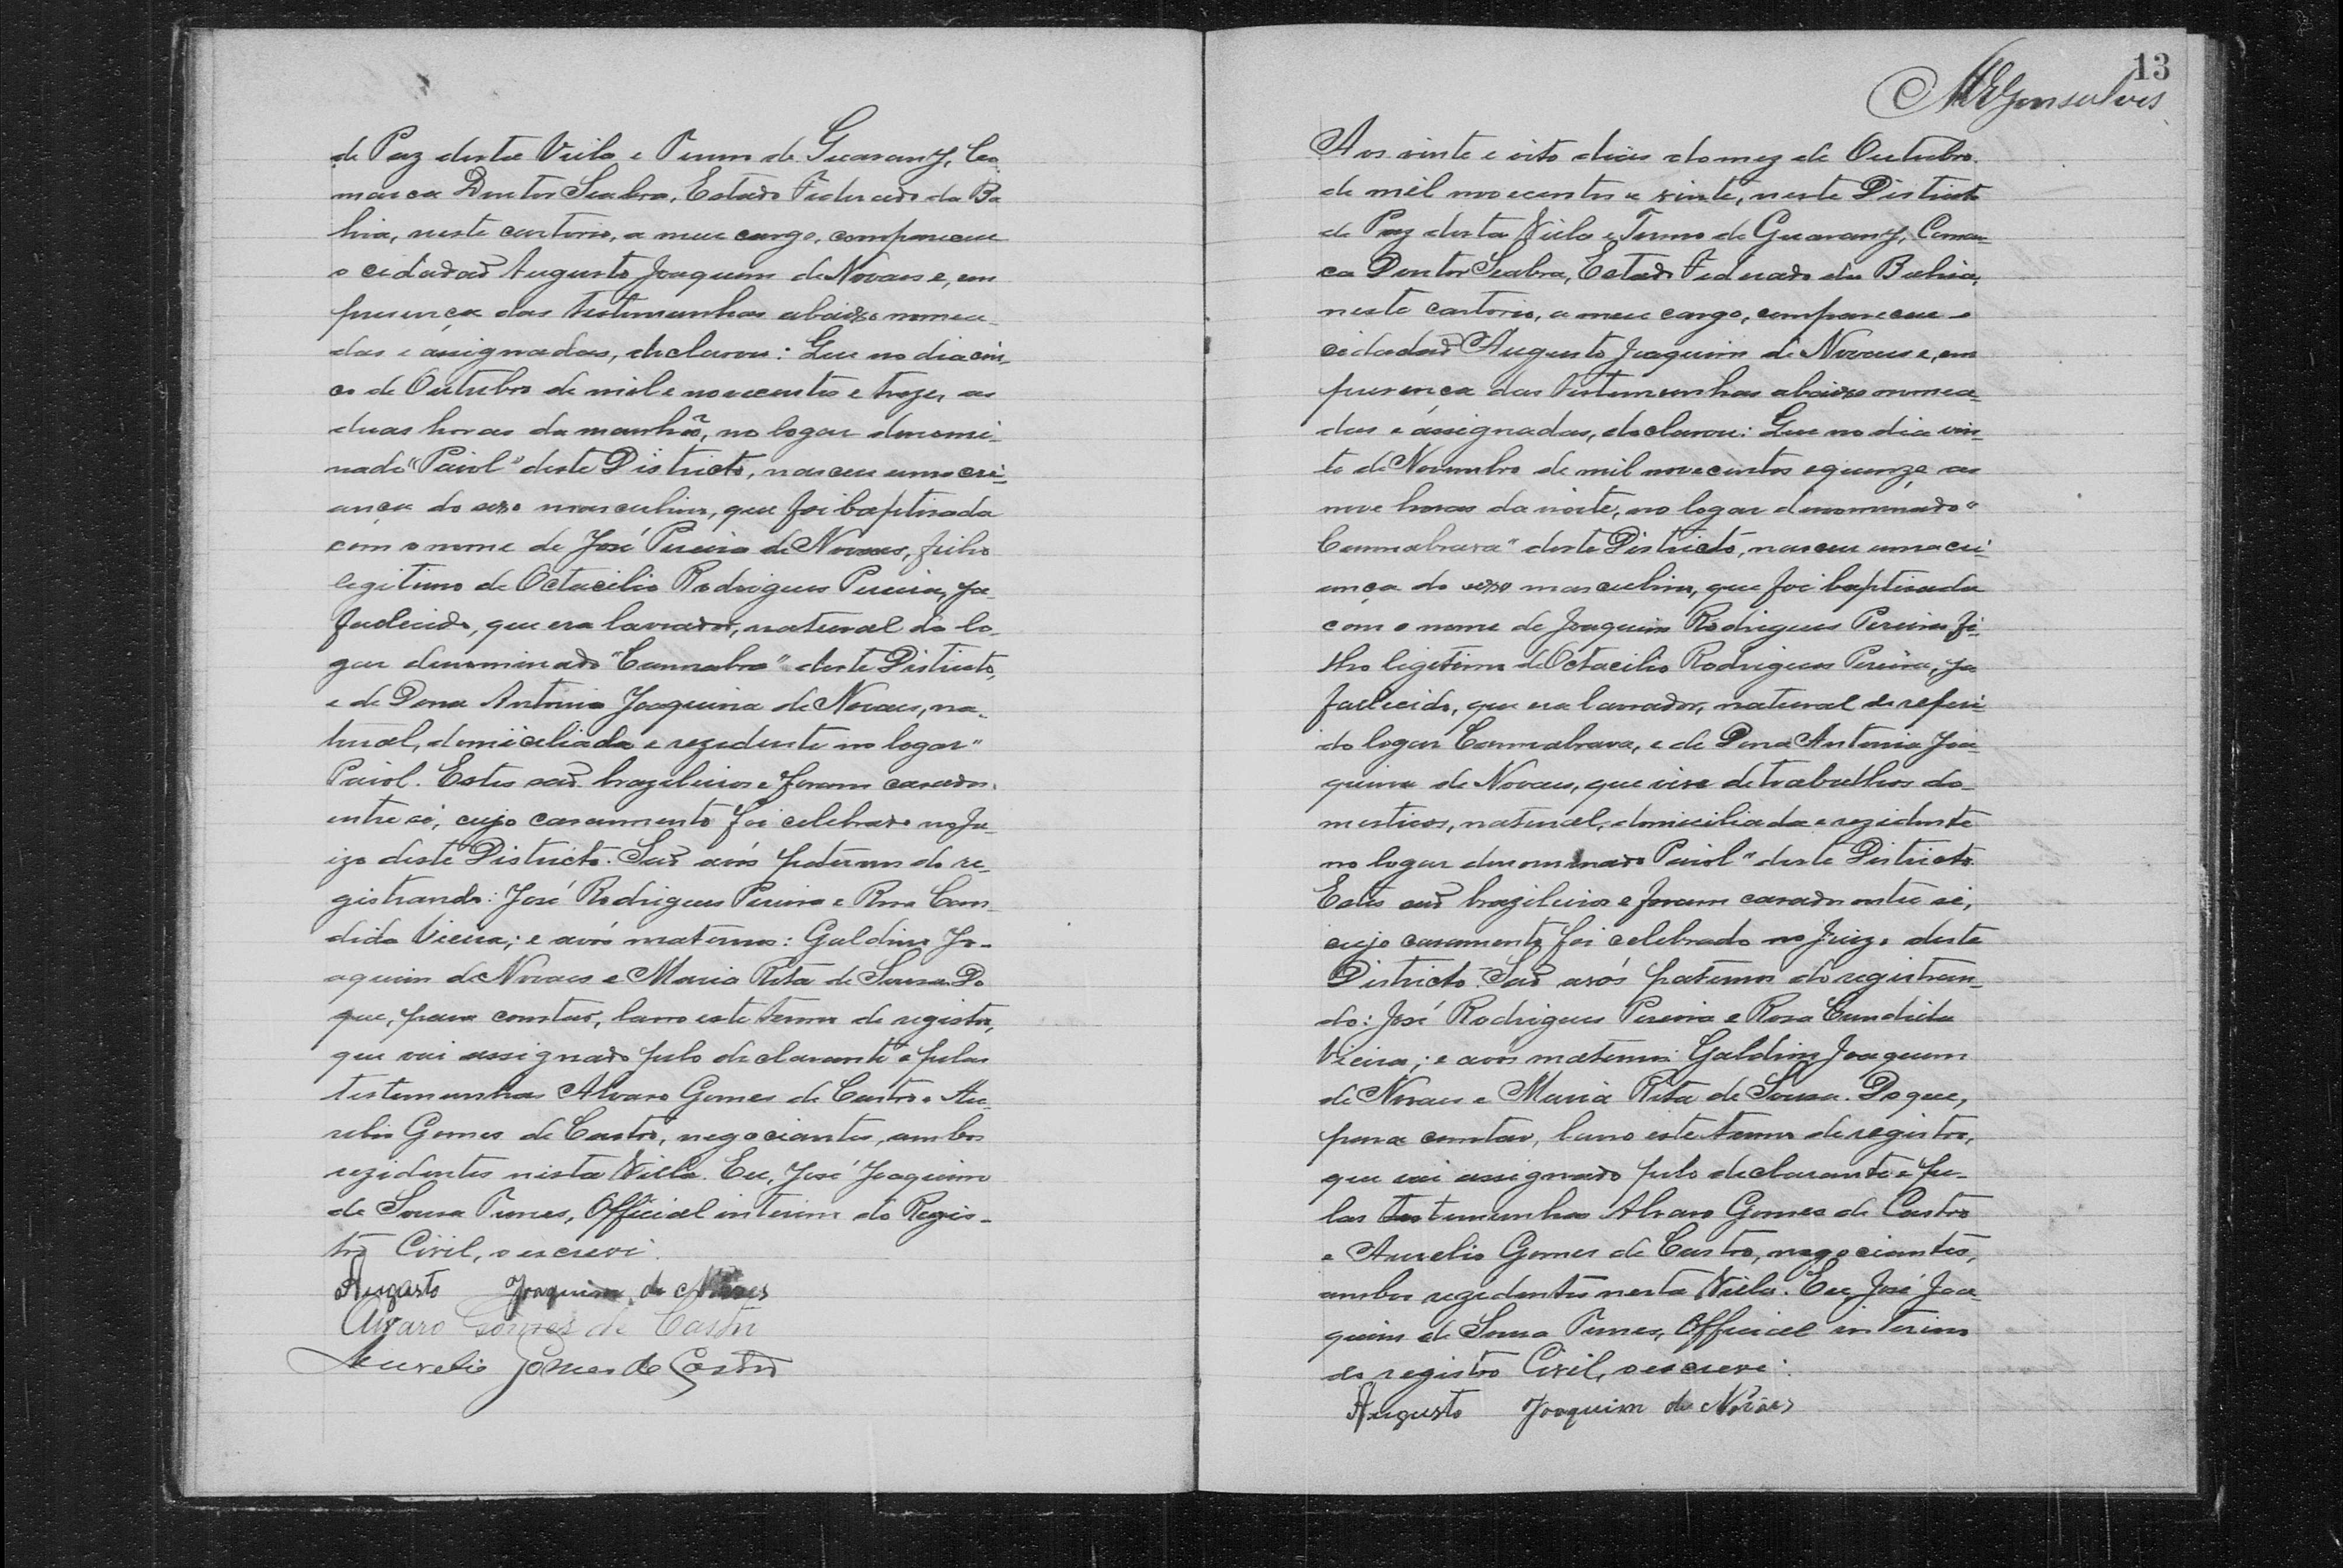 de Paz desta Villa e Termo de Guarany, Co-
marca Doutor Seabra, Estado Federado da Ba
hia, neste cartorio, a meu cargo, compareceu
o cidadaõ Augusto Joaquim de Novaes e, em
presença das testemunhas abaixo nomea-
das e assignadas, declarou: Que no dia cin-
co de Outubro de mil e novecentos e treze, as
duas horas da manhã, no logar denomi-
nado "Paiol" deste Districto, nasceu uma cri-
ança do sexo masculino, que foi baptisada
com o nome de José Pereira de Novaes, filho
legitimo de Octacilio Rodrigues Pereira, ja
fallecido, que era lavrador, natural do lo-
gar denominado "Cannabra" deste Districto,
e de Dona Antonia Joaquina de Novaes, na-
tural, domiciliada e rezidente no logar "
Paiol. Estes saõ brazileiros e foram casados
entre si, cujo casamento foi celebrado no Ju-
izo deste Districto. Saõ avós paternos do re-
gistrando: José Rodrigues Pereira e Rosa Can-
dida Vieira; e avós maternos: Galdino Jo-
aquim de Novaes e Maria Rita de Sousa. Do
que, para constar, lavro este termo de registro,
que vai assignado pelo declarante e pelas
testemunhas Alvaro Gomes de Castro e Au-
relio Gomes de Castro, negociantes, ambos
rezidentes nesta Villa. Eu, José Joaquim
de Sousa Tunes, Official interino do Regis-
tro Civil, o escrevi.
Augusto Joaquim de Novaes
Alvaro Gomes de Castro
Aurelio Gomes de Castro
13
MEGonsalves
Aos vinte e oito dias do mez de Outubro
de mil novecentos e vinte, neste Districto
de Paz desta Villa e Termo de Guarany, Comar-
ca Doutor Seabra, Estado Federado da Bahia,
neste cartorio, a meu cargo, compareceu o
cidadaõ Augusto Joaquim de Novaes e, em
presença das testemunhas abaixo nomea-
das e assignadas, declarou: Que no dia vin-
te de Novembro de mil novecentos e quinze, as
nove horas da noite, no logar denominado "
Cannabrava" deste Districto, nasceu uma cri-
ança do sexo masculino, que foi baptisada
com o nome de Joaquim Rodrigues Pereira fi-
lho legitimo de Octacilio Rodrigues Pereira, ja
fallecido, que era lavrador, natural do referi-
do logar Cannabrava, e de Dona Antonia Joa-
quina de Novaes, que vive de trabalhos do-
mesticos, natural, domiciliada e rezidente
no logar denominado Paiol" deste Districto.
Estes saõ brazileiros e foram casados entre si,
cujo casamento foi celebrado no Juizo deste
Districto. Saõ avós paternos do registran-
do: José Rodrigues Pereira e Rosa Candida
Vieira; e avós maternos: Galdino Joaquim
de Novaes e Maria Rita de Sousa. Do que,
para constar, lavro este termo de registro,
que vai assignado pelo declarante e pe-
las testemunhas Alvaro Gomes de Castro
e Aurelio Gomes de Castro, negociantes,
ambos rezidentes nesta Villa. Eu, José Joa-
quim de Sousa Tunes, Official interino
do registro Civil, o escrevi.
Augusto Joaquim de Novaes